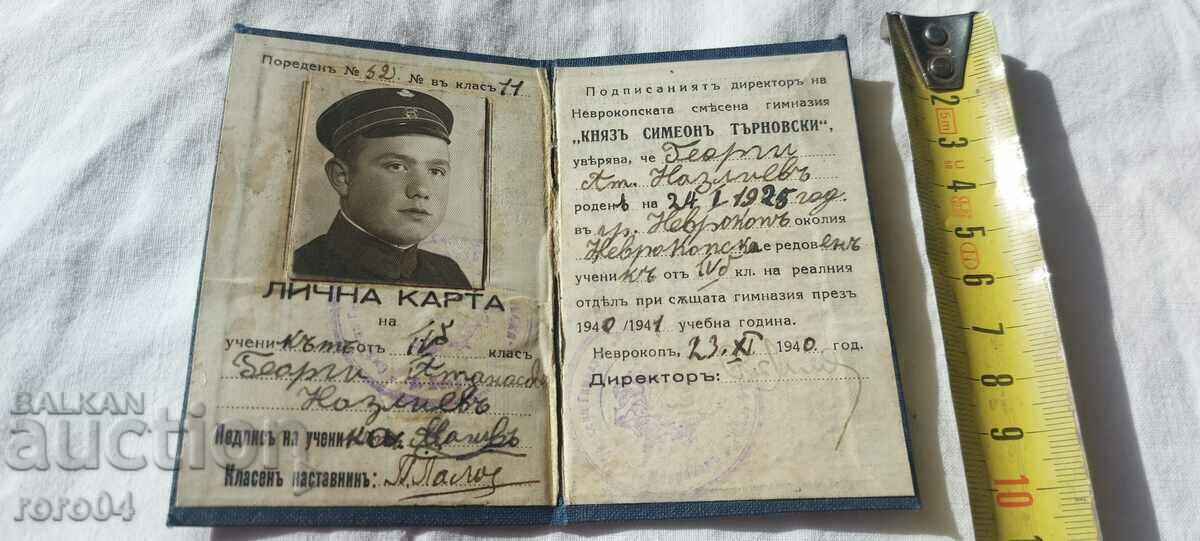 Пореденъ № 52. № въ класъ 11
ЛИЧНА КАРТА
на
ученикътъ отъ IVб класъ
Георги Атанасовъ
Назлиевъ
Подпись на ученика:
Класенъ наставникъ:
Подписаниятъ директоръ на
Неврокопската смѣсена гимназия
„КНЯЗЪ СИМЕОНЪ ТЪРНОВСКИ",
увѣрява, че Георги
Ат. Назлиевъ
роденъ на 24 I 1925 год.
въ гр. Неврокопъ околия
Неврокопска е редовенъ
ученикъ отъ IVб кл. на реалния
отдѣлъ при сѫщата гимназия презъ
1940/1941 учебна година.
Неврокопъ, 23. XI 1940. год.
Директоръ:
BALKAN
auction
roro04
2
3
4
5
6
7
8
9
10